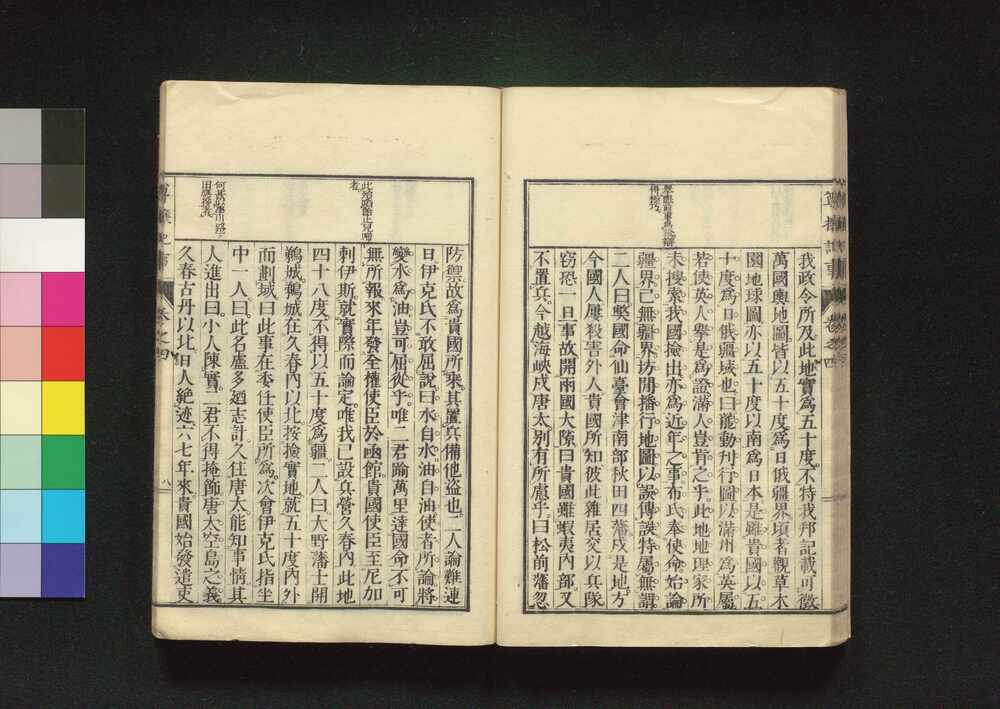 我政令所及此地實爲五十度不特我邦記載可徵
萬國輿地圖皆以五十度爲日俄疆界頃者觀草木
園地球圖亦以五十度以南爲日本是雖貴國以五
十度爲日俄疆域也曰龍動刊行圖以滿州爲英屬
若使英人擧是爲證滿人豈肯之乎此地地理家所
未搜索我國撿出亦爲近年之事布氏奉使命始論
疆界已無疆界坊間播行地圖以誤傳誤特屬無謂
二人曰奬國命仙臺會津南部秋田四藩戍是地方
今國人屢殺害外人貴國所知彼此雜居交以兵隊
竊恐一旦事故開兩國大隙曰貴國雖蝦夷內部又
不置兵今越海峽戍唐太別有所慮乎曰松前藩忽
防禦故爲貴國所乘其置兵備他盜也二人論難連
日伊克氏不敢屈說曰水自水油自油使者所論將
變水爲油豈可屈從乎唯二君踰萬里達國命不可
無所報來年發全權使臣於函館貴國使臣至尼加
剌伊斯就實際而論定唯我已設兵營久春內此地
四十八度不得以五十度爲疆二人曰大野藩士開
鵜城鵜城在久春內以北按撿實地就五十度內外
而劃域曰此事在委任使臣所爲次會伊克氏指坐
中一人曰此名盧多廻志計久住唐太能知事情其
人進出曰小人陳實二君不得掩飾唐太空島之義
久春古丹以北日人絶迹六七年來貴國始發遣吏
卷之四
八